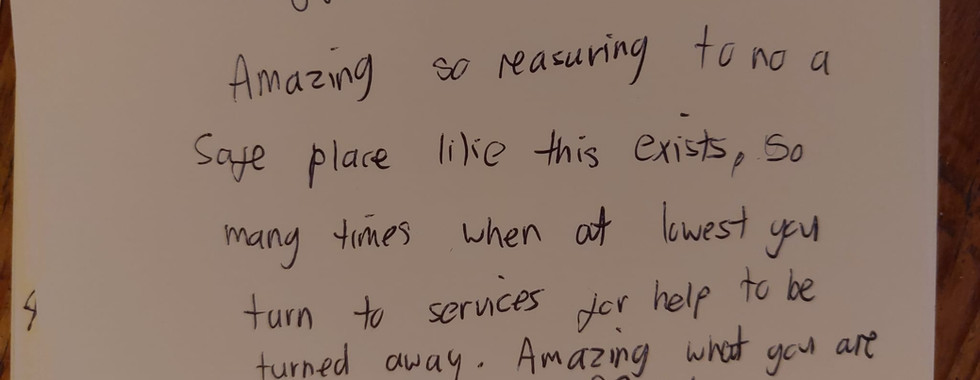 Amazing so reasuring to no a
safe place like this exists, so
many times when at lowest you
turn to services for help to be
turned away. Amazing what you are